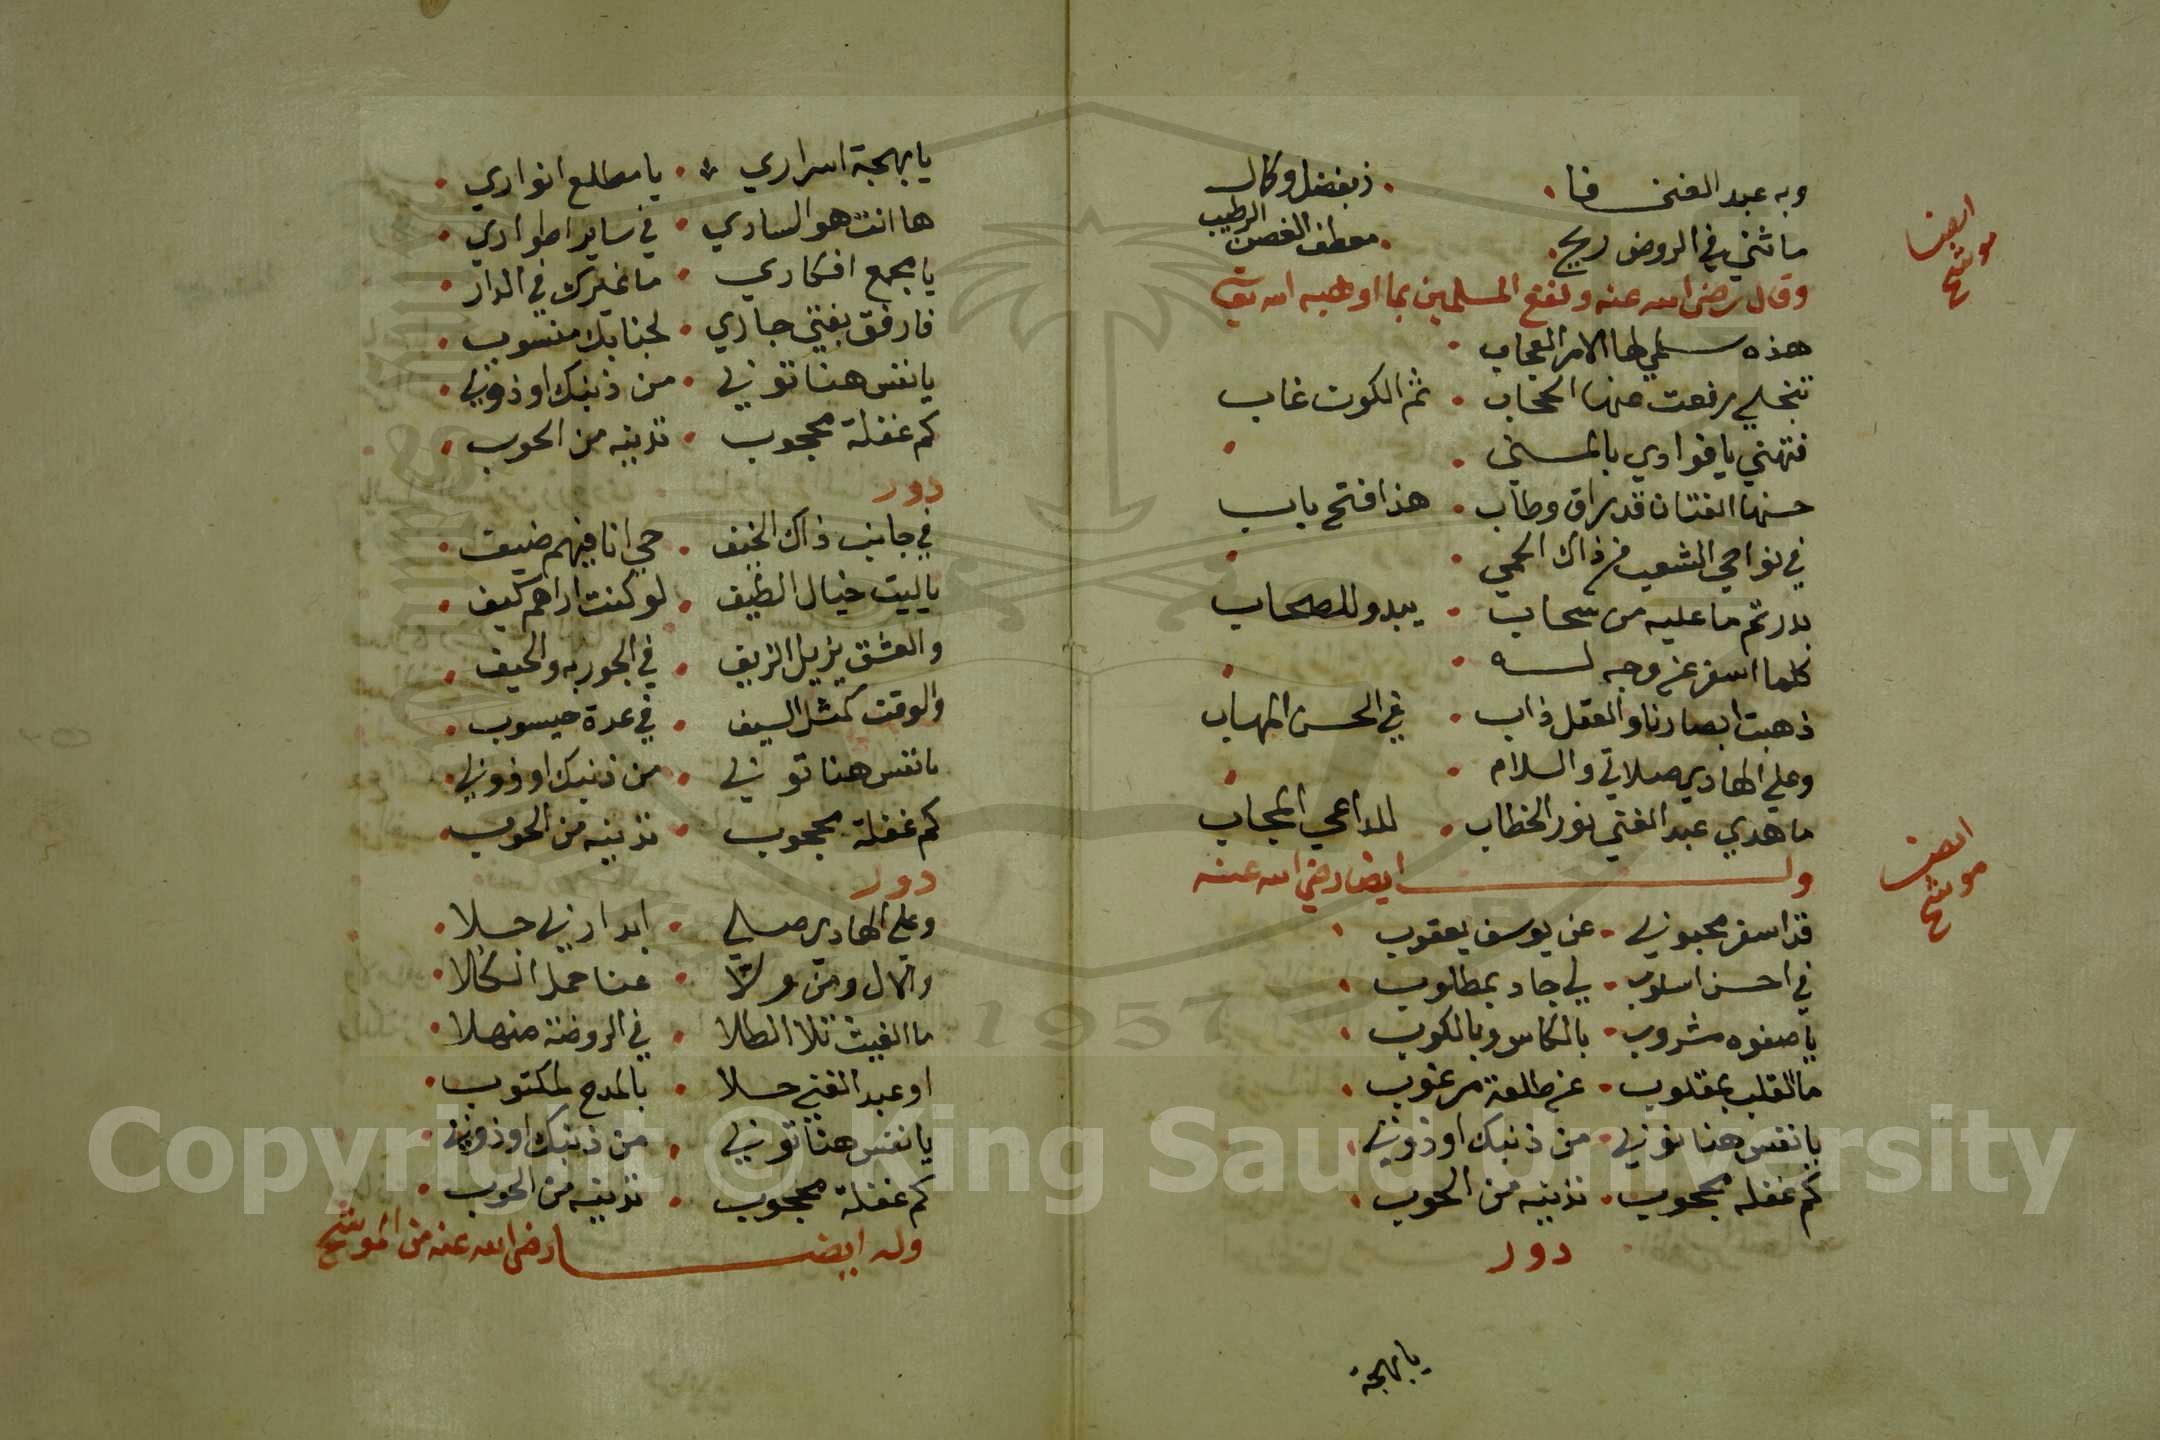 وبه عبد الغني فا . ز بفضل وكمال
ما ثني في الروض ريح . معطف الغصن الرطيب
ايضا
موشح
وقال رضي الله عنه ونفع المسلمين بما اوهبه الله
هذه سلمي لها الامر العجاب .
تنجلي رفعت عنها الحجاب . ثم الكون غاب
فتهني يا فوادي بالمني . .
حسنها الفتان قد راق وطاب . هذا فتح باب
في نواحي الشعب من ذاك الحمي . .
بدر تم ما عليه من سحاب . يبدو للصحاب
كلما اسفر عن وجه له . .
ذهبت ابصارنا والعقل ذاب . في الحسن المهاب
وعلي الهادي صلاتي والسلام . .
ما هدي عبد الغني نور الخطاب . للداعي المجاب
ايضا
موشح
وله ايضا رضي الله عنه
قد اسفر محبوبي . عن يوسف يعقوب .
في احسن اسلوب . لي جاد بمطلوب .
يا صفوه مشروب . بالكاس وبالكوب .
ما القلب بمقلوب . عن طلعة مرغوب .
يا نفس هنا توبي . من ذنبك او ذوبي .
كم غفله محجوب . تدنيه من الحوب .
دور
يا بهجة
يا بهجة اسراري . يا مطلع انواري .
ها انت هو الساري . في ساير اطواري .
يا مجمع افكاري . ما غيرك في الدار .
فارفق بفتي جاري . لجنابك منسوب .
يا نفس هنا توبي . من ذنبك او ذوبي .
كم غفلة محجوب . تدنيه من الحوب .
دور
في جانب ذاك الخيف . حي انا فيهم ضيف .
يا ليت خيال الطيف . لو كنت اراهم كيف .
والعشق يزيل الزيف . في الجور به والحيف .
والوقت كمثل السيف . في عدة حيسوب .
يا نفس هنا توبي . من ذنبك او ذوبي .
كم غفلة محجوب . تدنيه من الحوب .
دور
وعلي الهادي صلي . ابدا ربي جلا .
والآل ومن ولا . عنا حمل الكلا .
ما الغيث تلا الطلا . في الروضة منهلا .
او عبد الغني حلا . بالمدح لمكتوب .
يا نفس هنا توبي . من ذنبك او ذوبي .
كم غفلة محجوب . تدنيه من الحوب .
وله ايضا رضي الله عنه من الموشح
1957
Copyright © King Saud University